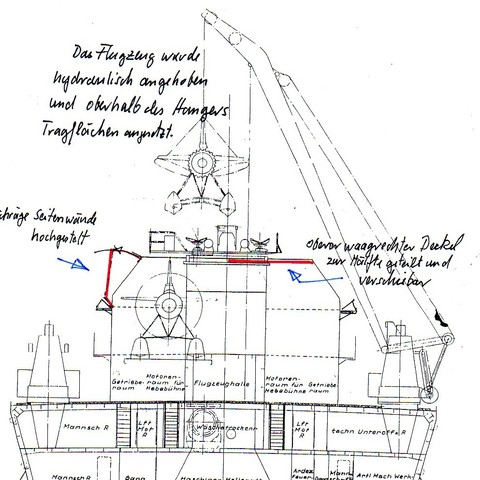 Das Flugzeug wurde
hydraulisch angehoben
und oberhalb des Hangers
Tragflächen angesetzt.
schräge Seitenwände
hochgestellt
oberer waagrechter Deckel
zur Hälfte geteilt und
verschiebbar
Motoren-
Getriebe-
raum
raum für
Hebebühne
Flugzeughalle
Motoren-
raum für Getriebe
Hebebühne
Mannsch R
Lft
Mot
R
Waschetrockenr
Lft
Mot
R
techn Unteroff.R
Mannsch R
Gang
Artl Mech Werks